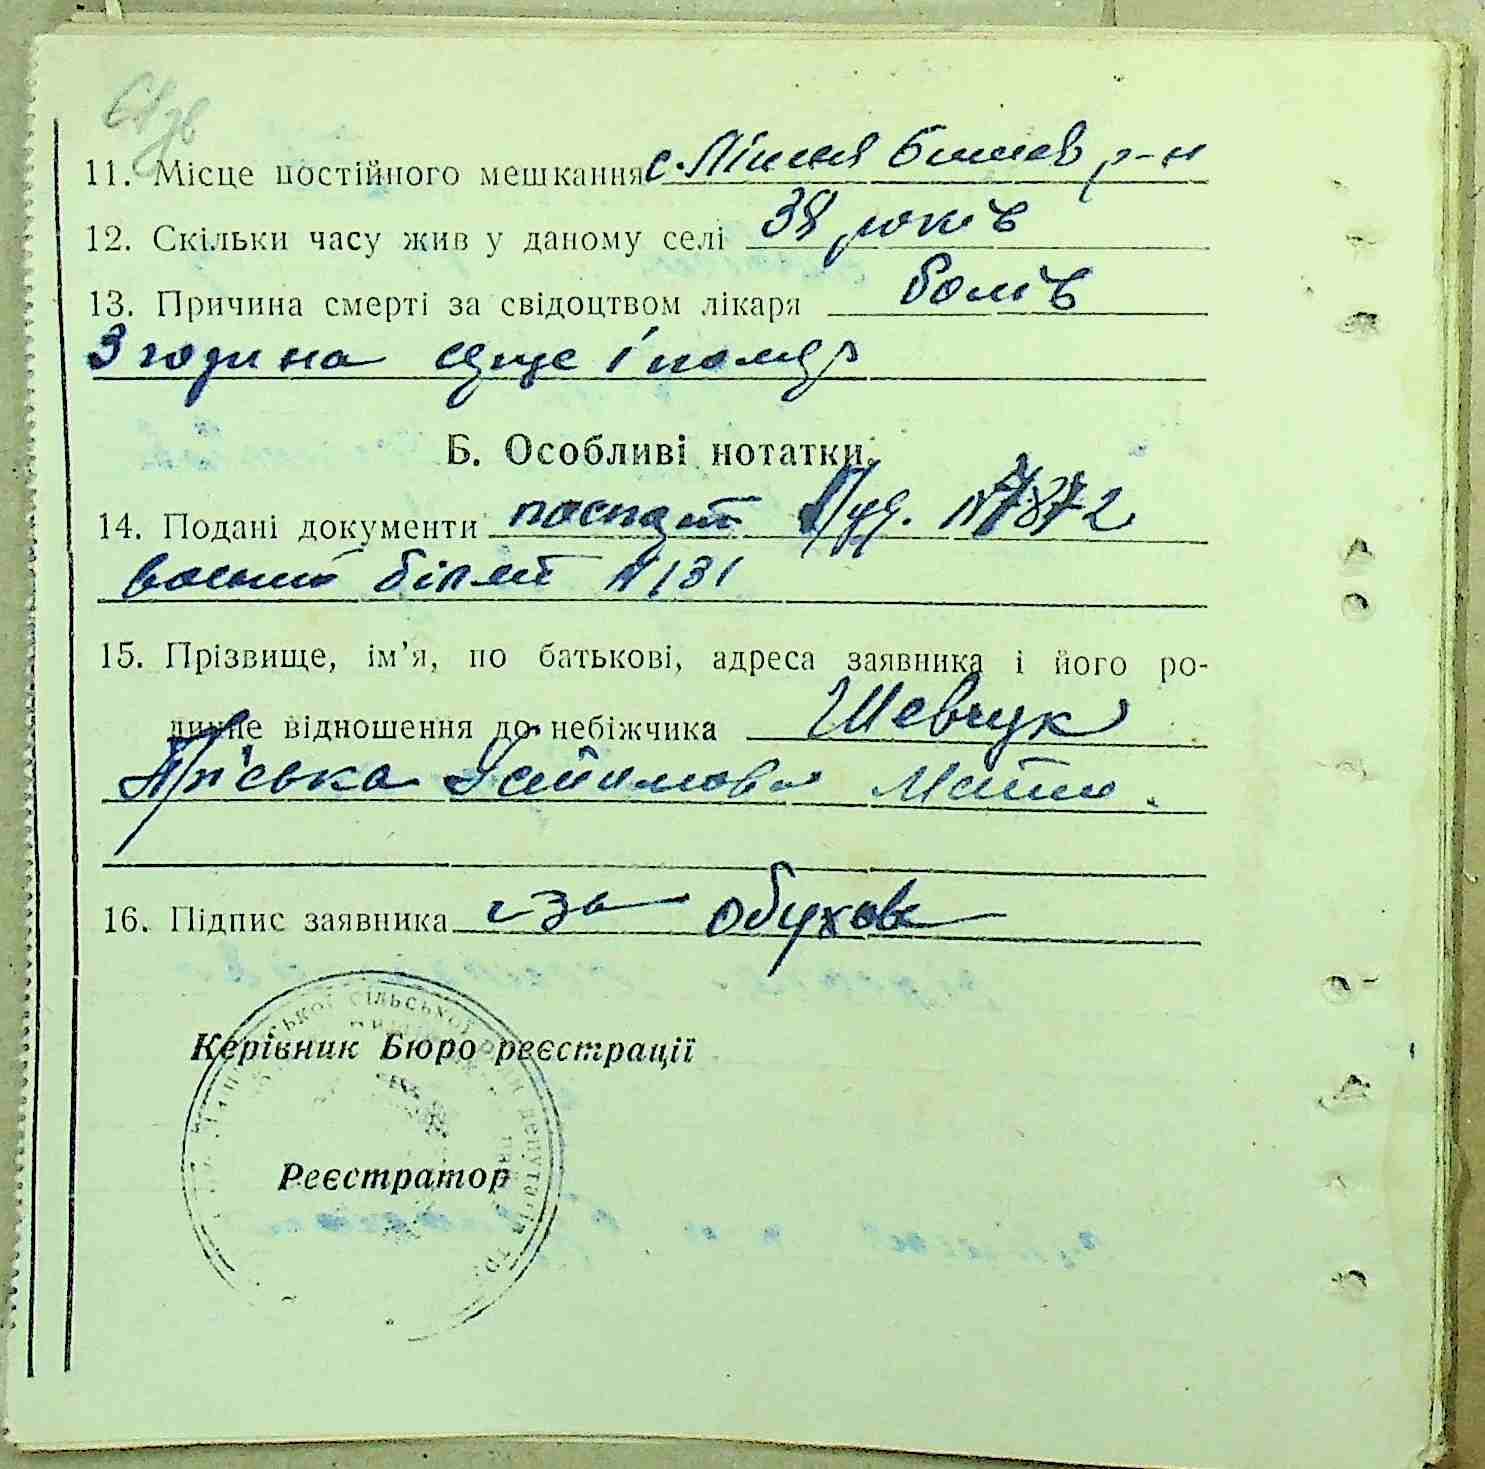 11. Місце постійного мешкання с. Лішня Бишев р-н
12. Скільки часу жив у даному селі 38 років
13. Причина смерті за свідоцтвом лікаря болів
3 година серце і помер
Б. Особливі нотатки.
14. Подані документи паспорт № 7872
воєний білет № 131
15. Прізвище, ім'я, по батькові, адреса заявника і його ро-
динне відношення до небіжчика Шевчук
Пріська Мати.
16. Підпис заявника за Обухов
Керівник Бюро реєстрації
Реєстратор
сільської Ради депутатів